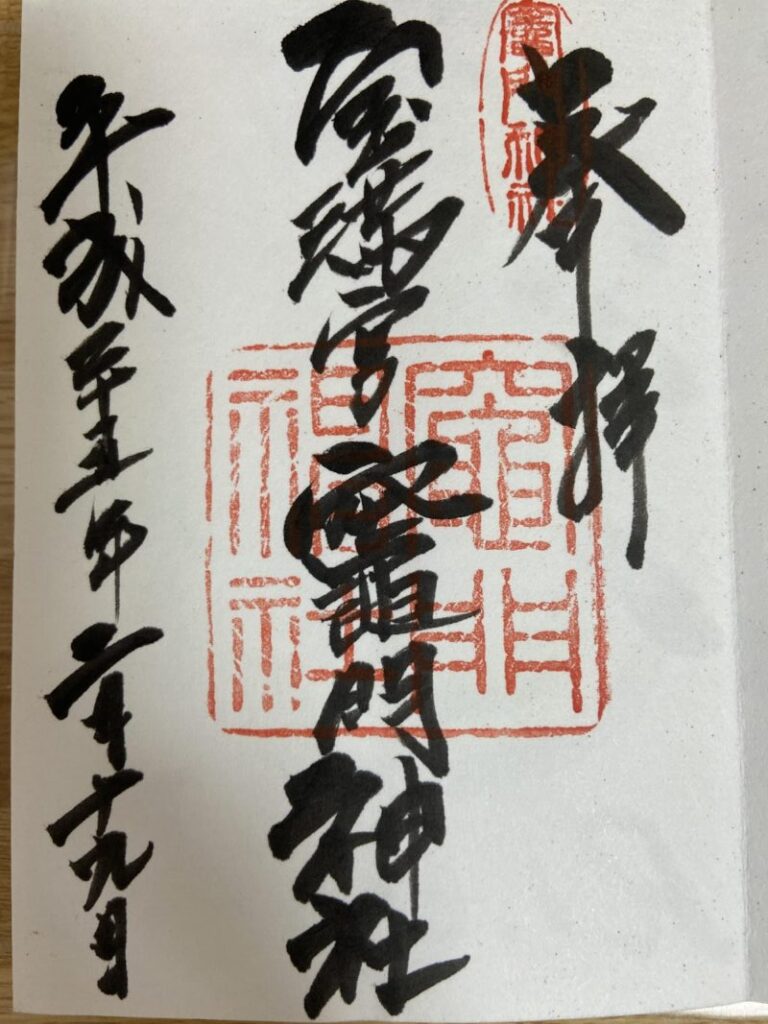 奉拝
竈門神社
宝満宮 竈門神社
竈門神社
平成二十五年 二月十九日